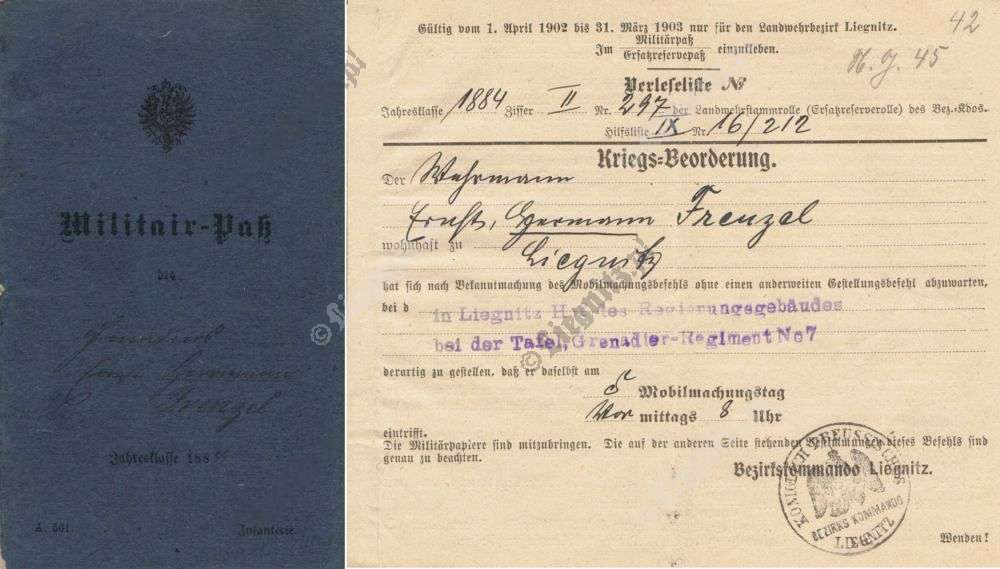 Militair-Paß
des
Ernst Hermann
Frenzel
Jahresklasse 188
A. 501.
Infanterie.
Gültig vom 1. April 1902 bis 31. März 1903 nur für den Landwehrbezirk Liegnitz.
42
Im Militärpaß
Ersatzreservepaß einzukleben.
N. J. 45
Verleseliste №
Jahresklasse 1884 Ziffer II Nr. 297 der Landwehrstammrolle (Ersatzreserverolle) des Bez.-Kdos.
Hilfsliste IX Nr. 16/212
Kriegs=Beorderung.
Der Wehrmann
Ernst, Hermann Frenzel
wohnhaft zu
Liegnitz
hat sich nach Bekanntmachung des Mobilmachungsbefehls ohne einen anderweiten Gestellungsbefehl abzuwarten,
bei d
in Liegnitz Hof des Regierungsgebäudes
bei der Tafel, Grenadier-Regiment No 7
derartig zu gestellen, daß er daselbst am
5 Mobilmachungstag
Vor mittags 8 Uhr
eintrifft.
Die Militärpapiere sind mitzubringen. Die auf der anderen Seite stehenden Bestimmungen dieses Befehls sind
genau zu beachten.
Bezirkskommando Liegnitz.
KÖNIGLICH PREUSSISCHES
BEZIRKS KOMMANDO
LIEGNITZ
Wenden!
© Liegnitz.pl